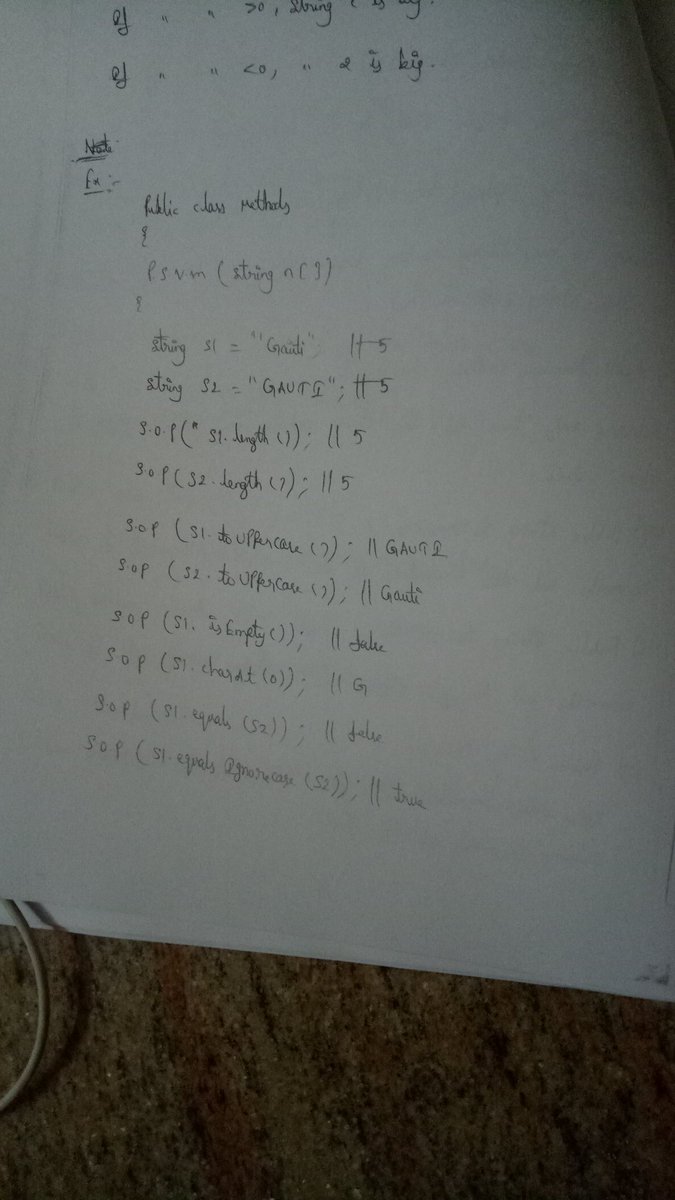 If " " >0, string is
If " " <0, " 2 is big.
Note
Ex:-
Public class Methods
{
P S V.m (string n[])
{
string S1 = "Gauti"; // 5
string S2 = "GAUTI"; // 5
S.O.P(" S1.length ()); // 5
S.O.P(S2.length ()); // 5
S.O.P (S1.toUppercase ()); // GAUTI
S.O.P (S2.toUppercase ()); // Gauti
S.O.P (S1.isEmpty()); // false
S.O.P (S1.charAt(0)); // G
S.O.P (S1.equals (S2)); // false
S.O.P (S1.equals Ignorecase (S2)); // true